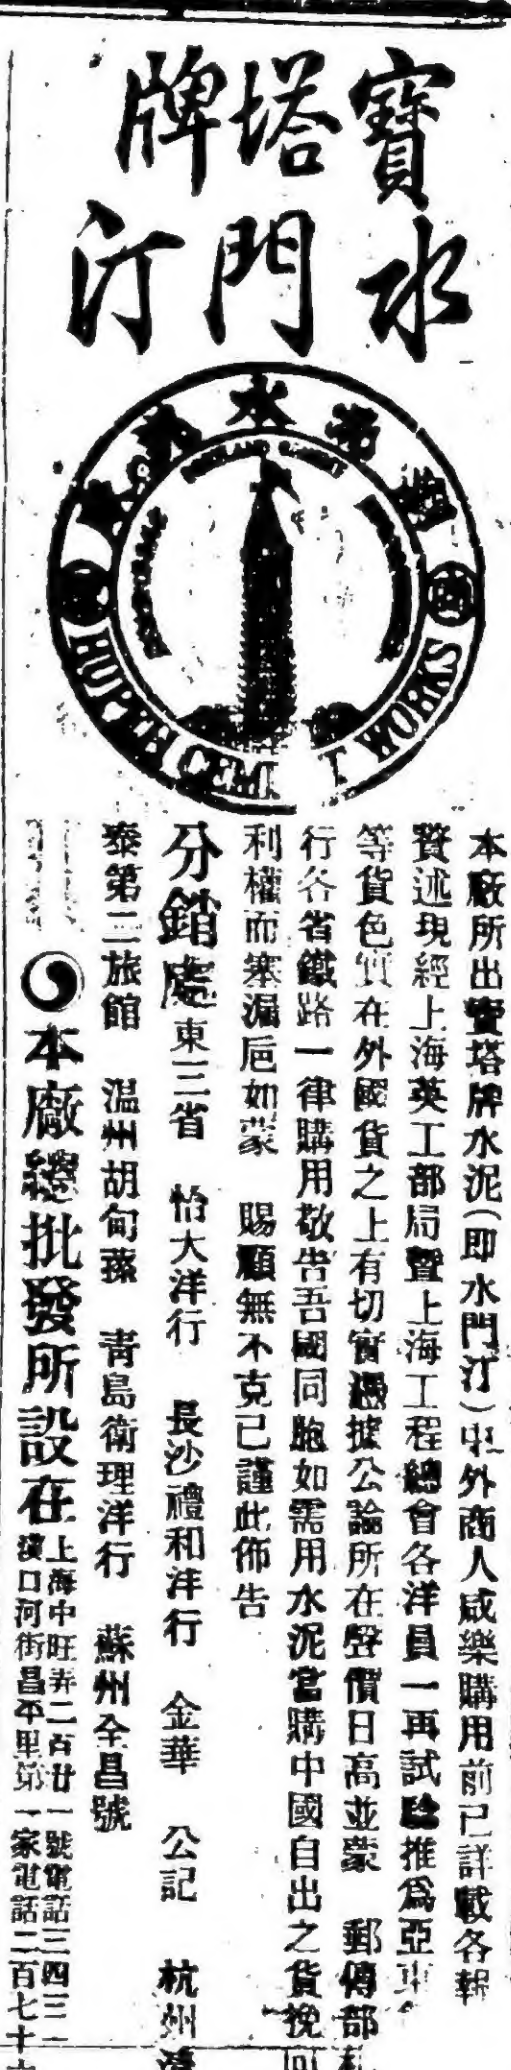 寶塔牌
水門汀
湖北水泥廠
HUPEH CEMENT WORKS
PORTLAND CEMENT
本廠所出寶塔牌水泥(即水門汀)中外商人咸樂購用前已詳載各報
贅述現經上海英工部局暨上海工程總會各洋員一再試驗推為亞東
等貨色質在外國貨之上有切實憑據公論所在聲價日高並蒙 郵傳部
行各省鐵路一律購用敬告吾國同胞如需用水泥當購中國自出之貨挽回
利權而塞漏巵如蒙 賜顧無不克己謹此佈告
分銷處 東三省 怡大洋行 長沙禮和洋行 金華 公記 杭州
泰第二旅館 温州胡甸蓀 青島衛理洋行 蘇州全昌號
本廠總批發所設在
上海中旺弄二百廿一號電話三四三一
漢口河街昌平里第一家電話二百七十